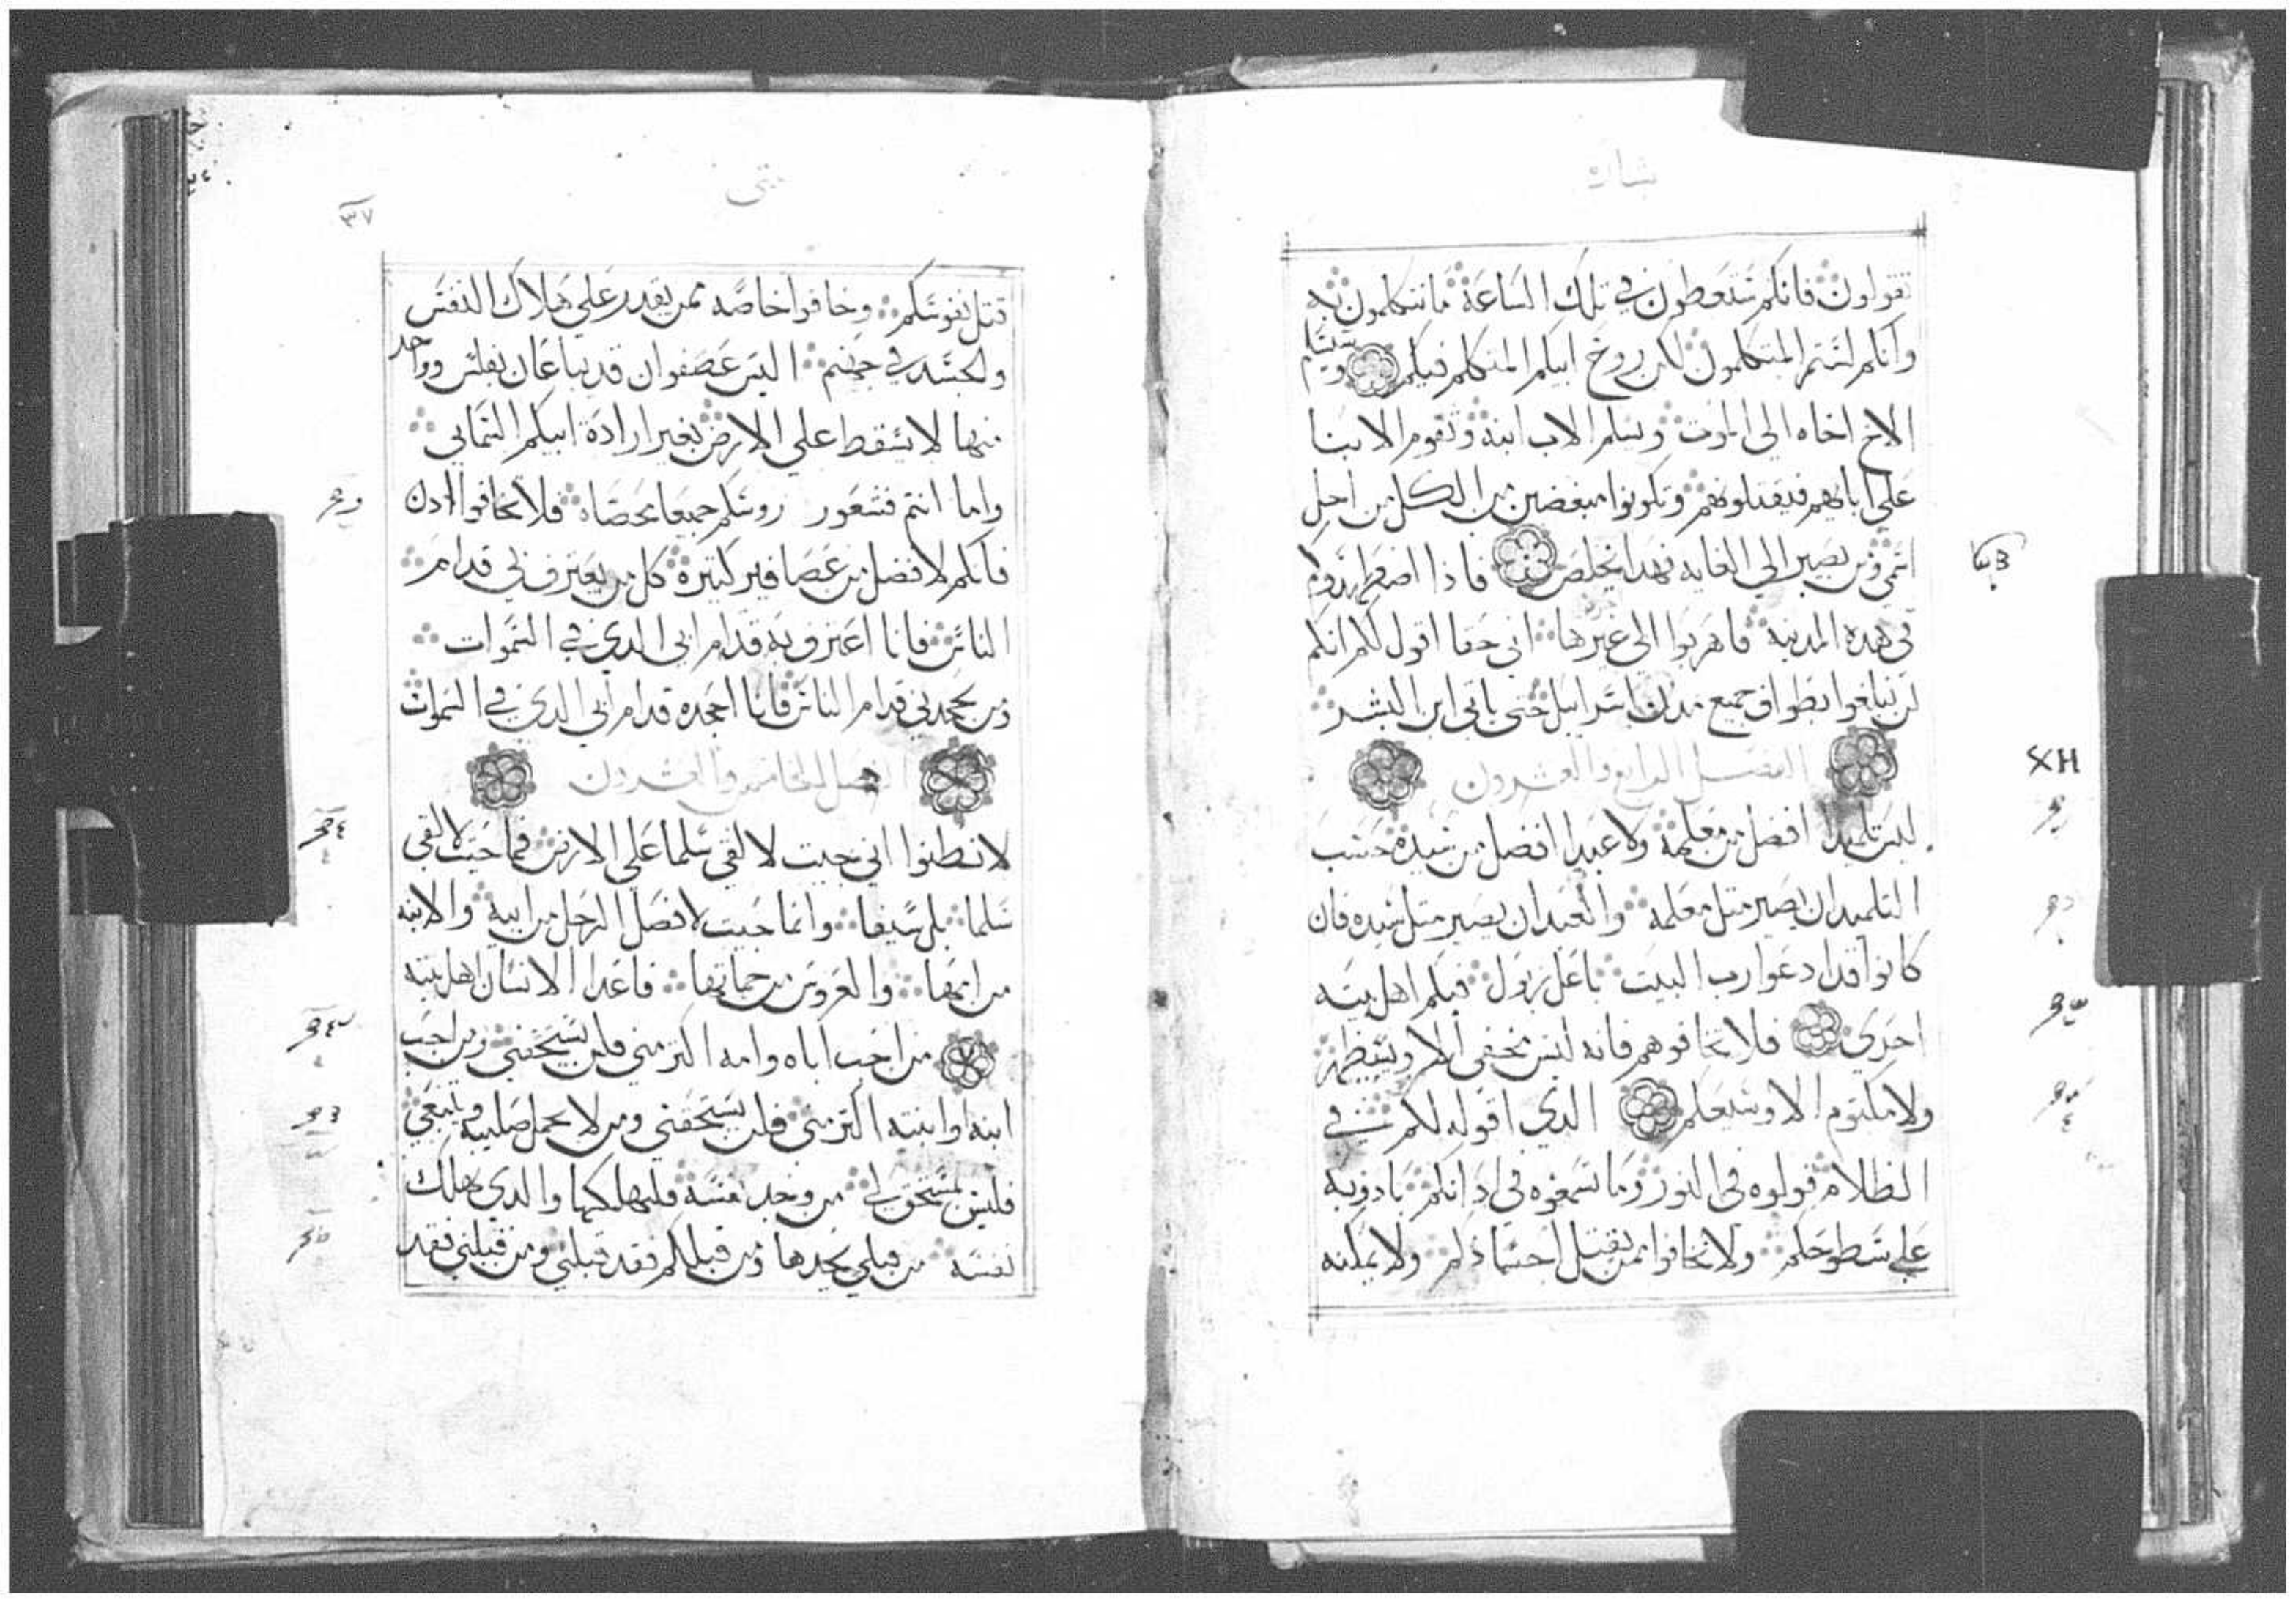 بشارة
تقولون فانكم ستعطون في تلك الساعة ما تتكلمون به
وانكم لستم المتكلمون لكن روح ابيكم المتكلم فيكم وسيسلم
الاخ اخاه الي الموت ويسلم الاب ابنه وتقوم الابنا
علي ابايهم فيقتلونهم وتكونوا مبغضين من الكل من اجل
اسمي ومن يصبر الي الغايه فهدا يخلص فاذا اضطهدوكم
في هده المدينه فاهربوا الي غيرها اني حقا اقول لكم انكم
لن تبلغوا تطواف جميع مدن اسراييل حتي ياتي ابن البشر
الفصل الرابع والعشرون
ليس تلميدا افضل من معلمه ولا عبدا افضل من سيده حسب
التلميد ان يصير متل معلمه والعبد ان يصير متل سيده فان
كانوا قد ادعوا رب البيت باعل زبول فبكم اهل بيته
احري فلا تخافوهم فانه ليس مخفي الا وسيظهر
ولا مكتوم الا وسيعلم الدي اقوله لكم في
الظلام قولوه في النور وما تسمعوه في ادانكم نادو به
علي سطوحكم ولا تخافوا ممن يقتل احسادكم ولا يمكنه
متي
٣٧
قتل نفوسكم وخافوا خاصه ممن يقدر علي هلاك النفس
والجسد في جهنم اليس عصفوان قد يباعان بفلس وواحد
منها لا يسقط علي الارض بغير ارادة ابيكم السمايي
واما انتم فشعور روسكم جميعا محصاه فلا تخافوا ادن
فانكم لافضل من عصافير كتيرة كل من يعترف بي قدام
الناس فانا اعترف به قدام ابي الدي في السموات
ومن يجحدني قدام الناس فانا اجحده قدام ابي الدي في السموات
الفصل الخامس والعشرون
لا تظنوا اني جيت لالقي سلما علي الارض فما جيت لالقي
سلما بل سيفا وانما جيت لافصل الرجل من ابيه والابنه
من امها والعروس من حماتها فاعدا الانسان اهل بيته
من احب اباه وامه اكتر مني فلن يستحقني ومن احب
ابنه او ابنته اكتر مني فلن يستحقني ومن لا يحمل صليبه ويتبعني
فليس بمستحق لي من وجد نفسه فليهلكها والدي يهلك
نفسه من قبلي يجدها ومن قبلكم فقد قبلني ومن قبلني فقد